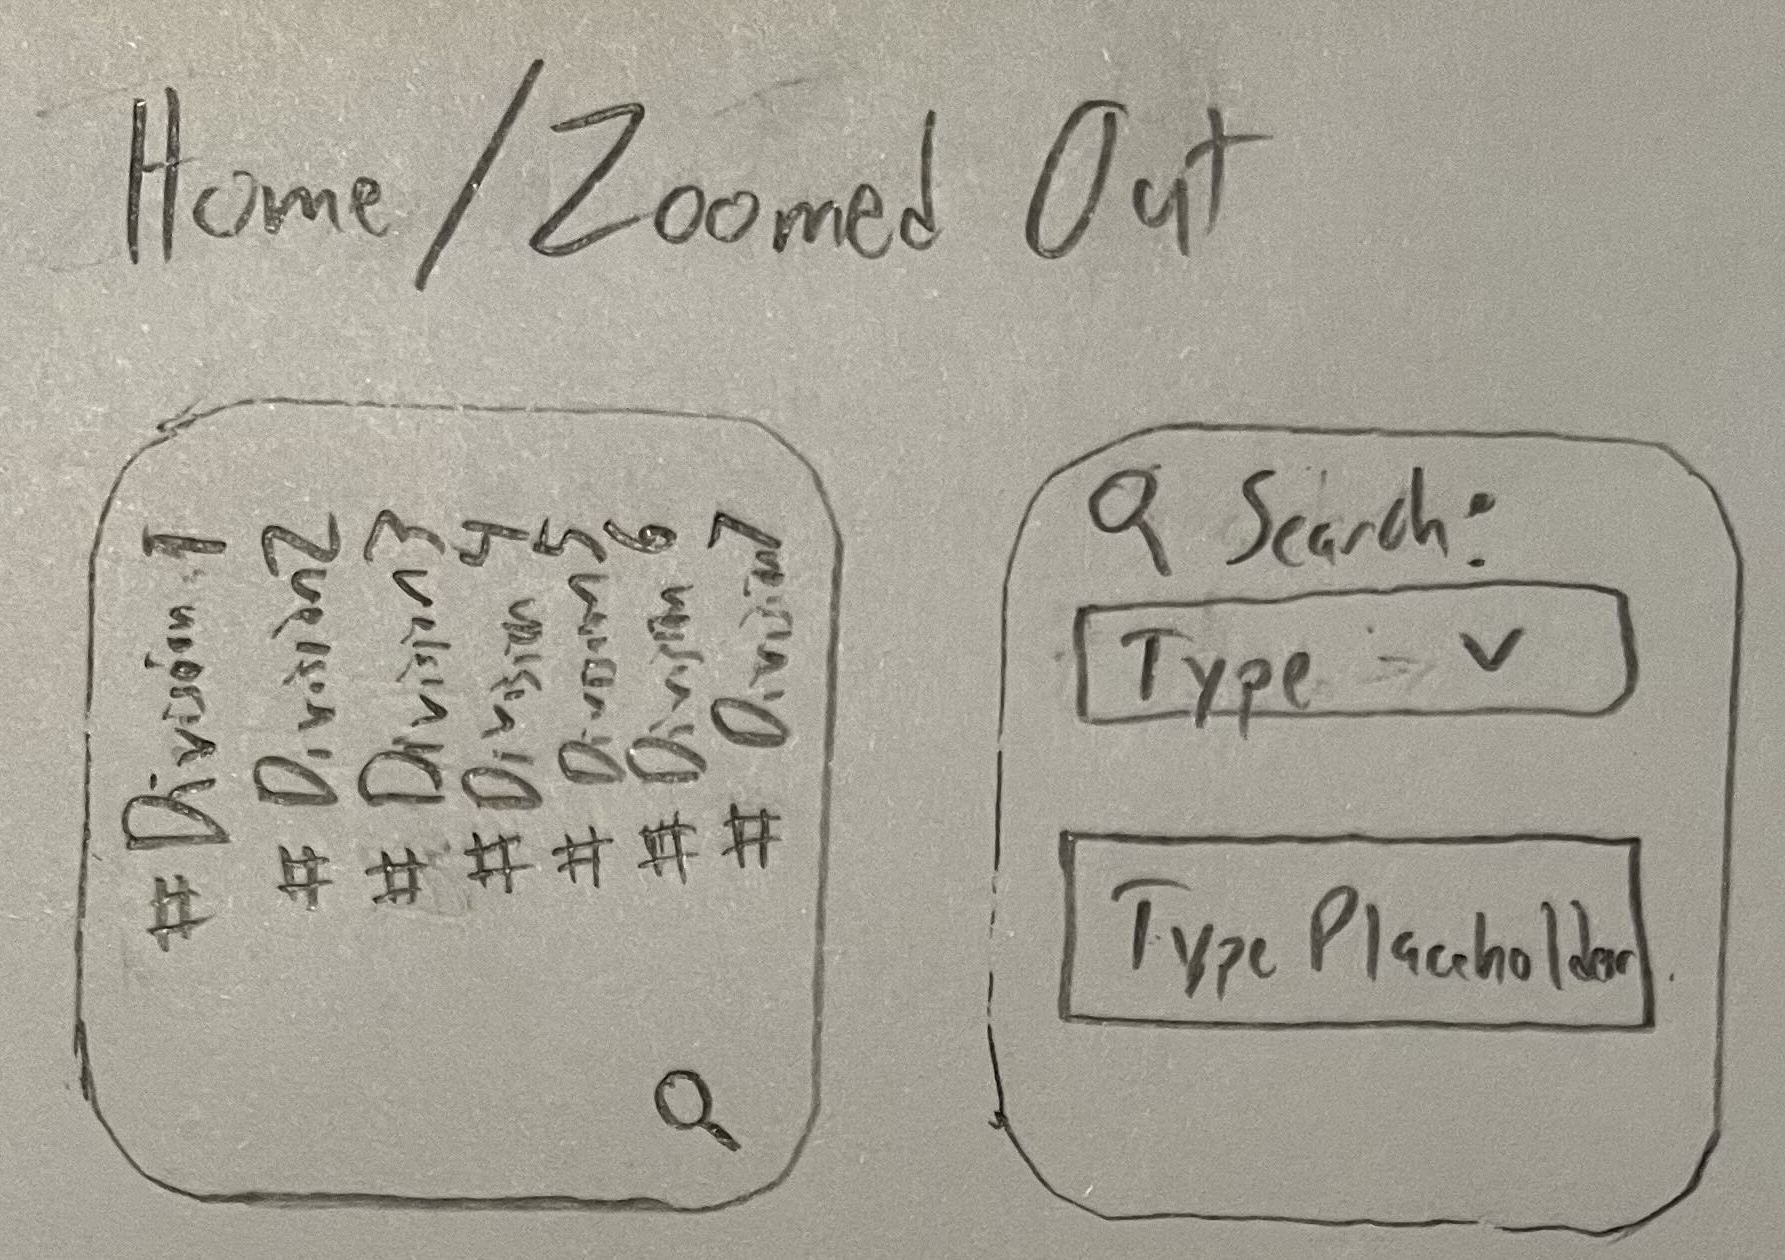 Home / Zoomed Out
# Division 1
# Division 2
# Division 3
# Division 4
# Division 5
# Division 6
# Division 7
Search:
Type
Type Placeholder